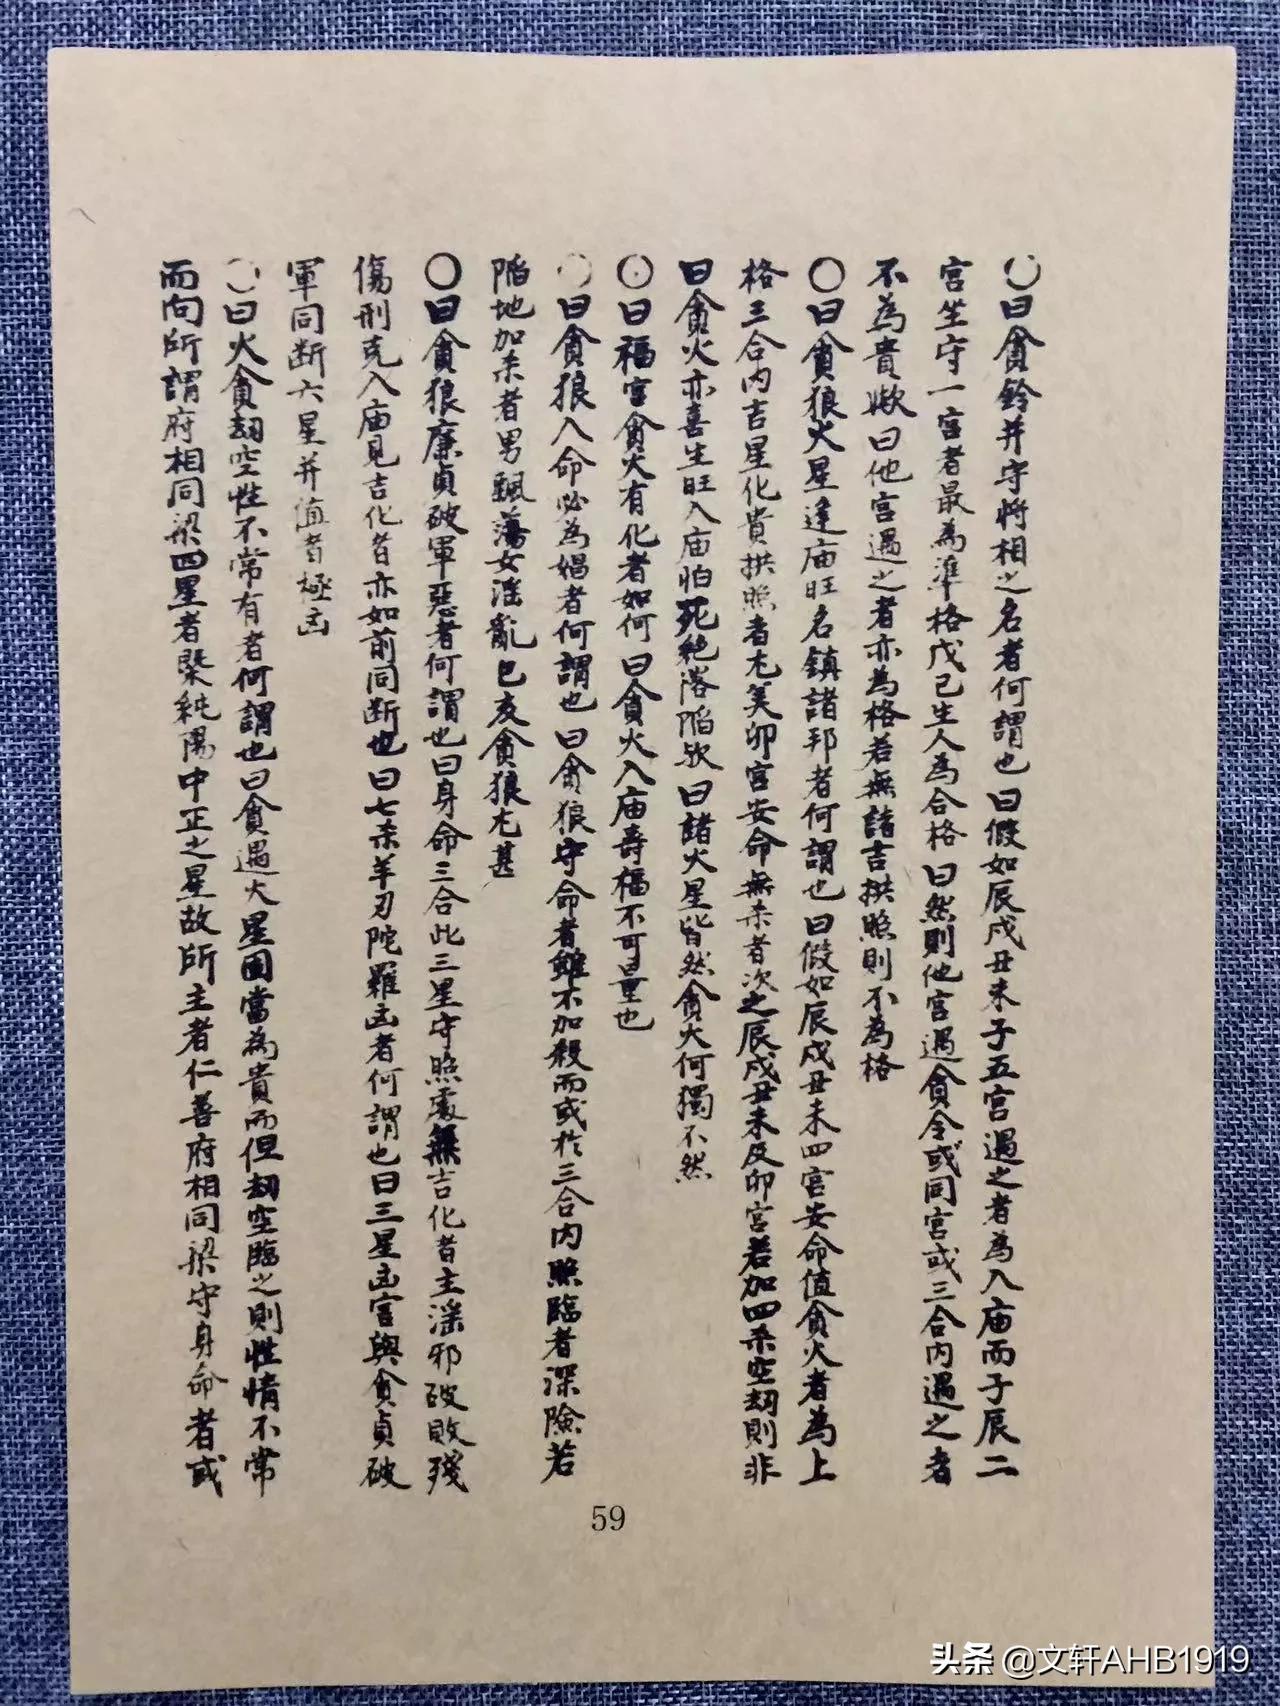 〇曰貪鈴并守將相之名者何謂也曰假如辰戍丑未子五宫遇之者為入庙而子辰二
宫坐守一宫者最為準格戊己生人為合格曰然則他宫遇貪令或同宫或三合内遇之者
不為貴欤曰他宫遇之者亦為格若無諸吉拱照則不為格
〇曰貪狼火星逢庙旺名鎮諸邦者何謂也曰假如辰戍丑未四宫安命值貪火者為上
格三合内吉星化貴拱照者尤美卯宫安命無杀者次之辰戍丑未及卯宫若加四杀空刼則非
曰貪火亦喜生旺入庙怕死絶落陷欤曰諸火星皆然貪火何獨不然
〇曰福宫貪火有化者如何曰貪火入庙壽福不可量也
〇曰貪狼入命必為娼者何謂也曰貪狼守命者雖不加殺而或於三合内照臨者深險若
陷地加杀者男飄蕩女滛亂巳亥貪狼尤甚
〇曰貪狼廉貞破軍惡者何謂也曰身命三合此三星守照處無吉化者主滛邪破敗殘
傷刑克入庙見吉化者亦如前同断也曰七杀羊刃陀羅凶者何謂也曰三星凶宫與貪貞破
軍同断六星并值者極凶
〇曰火貪刼空性不常有者何謂也曰貪遇火星固當為貴而但刼空臨之則性情不常
而向所謂府相同梁四星者槩純陽中正之星故所主者仁善府相同梁守身命者或
59
头条 @文轩AHB1919